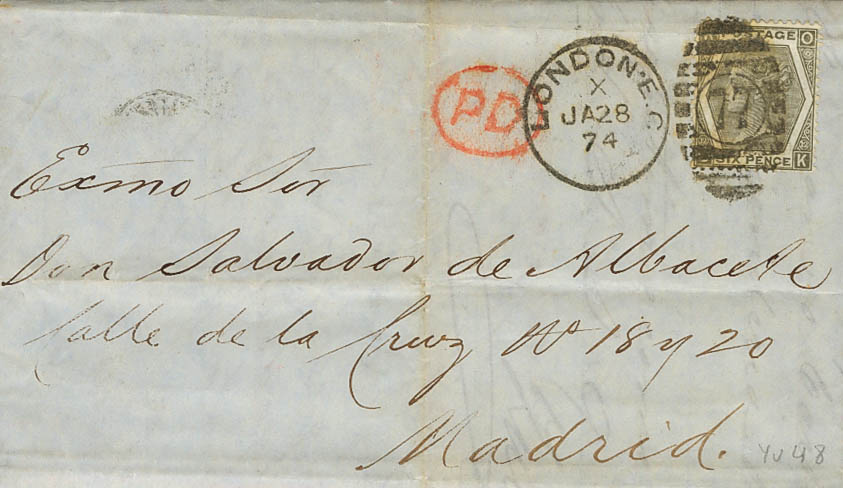 POSTAGE O
PD
LONDON·E.C
X
JA28
74
77
SIX PENCE K
Exmo Sõr
Don Salvador de Albacete
Calle de la Cruz Nº 18 y 20
Madrid.
Yv 48